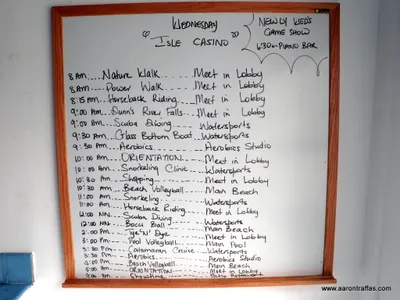 WEDNESDAY
"ISLE CASINO"
NEWLY WED'S
GAME SHOW
6:30 - PIANO BAR
8 AM.... Nature Walk .... Meet in Lobby
8 AM.... Power Walk .... Meet in Lobby
8:15 AM... Horseback Riding... Meet in Lobby
9:00 AM... Dunn's River Falls... Meet in Lobby
9:00 AM... Scuba Diving... Watersports
9:30 AM... Glass Bottom Boat... Watersports
9:30 AM... Aerobics... Aerobics Studio
10:00 AM... ORIENTATION... Meet in Lobby
10:00 AM... Snorkeling Clinic... Watersports
10:30 AM... Shopping... Meet in Lobby
10:30 AM... Beach Volleyball... Main Beach
11:00 AM... Snorkeling... Watersports
11:00 AM... Horseback Riding... Meet in Lobby
12:00 NN... Scuba Diving... Watersports
12:00 NN... Bocci Ball... Main Beach
2:00 PM... Tye 'N' Dye... Meet in Lobby
3:00 PM... Pool Volleyball... Main Pool
Catamaran Cruise... Watersports
Aerobics... Aerobics Studio
Beach Volleyball... Main Beach
ORIENTATION... Meet in Lobby
www.aarontraffas.com